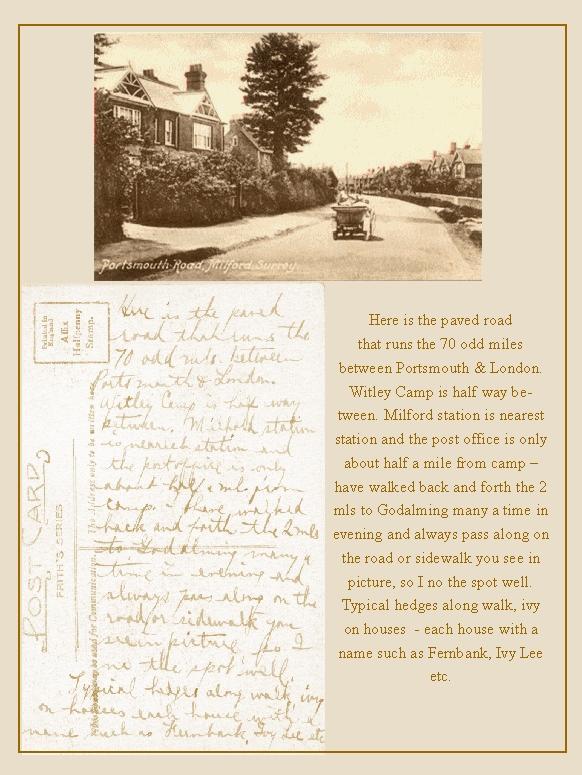 Portsmouth Road, Milford. Surrey.
Printed in
England
Affix
Halfpenny
Stamp.
POST CARD
FRITH'S SERIES
The Address only to be written here
be used for Communication.
Here is the paved
road that runs the
70 odd mls. between
Portsmouth & London.
Witley Camp is half way
between. Milford station
is nearest station and
the post office is only
about half a ml. from
camp. I have walked
back and forth the 2 mls
to Godalming many a
time in evening and
always pass along on the
road or sidewalk you
see in picture, so I
no the spot well.
Typical hedges along walk, ivy
on houses each house with a
name such as Fernbank, Ivy Lee etc
Here is the paved road
that runs the 70 odd miles
between Portsmouth & London.
Witley Camp is half way be-
tween. Milford station is nearest
station and the post office is only
about half a mile from camp –
have walked back and forth the 2
mls to Godalming many a time in
evening and always pass along on
the road or sidewalk you see in
picture, so I no the spot well.
Typical hedges along walk, ivy
on houses - each house with a
name such as Fernbank, Ivy Lee
etc.